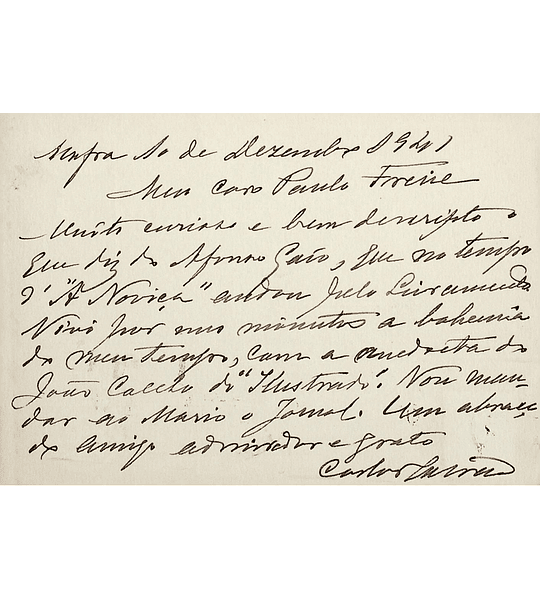 Mafra 10 de Dezembro 1941
Meu caro Paulo Freire
Muito curioso e bem descripto o
que diz do Afonso Gaio, que no tempo
d' "A Noviça" andou pelo Livramento
Vivi por uns minutos a bohemia
do meu tempo, com a anedocta do
João Coelho do "Ilustrado". Vou man-
dar ao Mario o Jornal. Um abraço
do amigo admirador e grato
Carlos